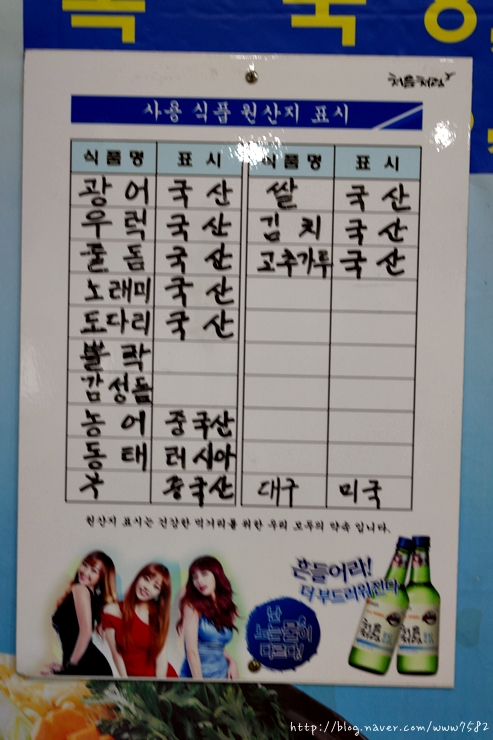 처음처럼
사용 식품 원산지 표시
식품명 표시 식품명 표시
광어 국산 쌀 국산
우럭 국산 김치 국산
돌돔 국산 고추가루 국산
노래미 국산
도다리 국산
뽈락
감성돔
농어 중국산
동태 러시아
중국산 대구 미국
원산지 표시는 건강한 먹거리를 위한 우리 모두의 약속 입니다.
흔들어라!
더 부드러워진다
난
노는물이
다르다!
http://blog.naver.com/www7582